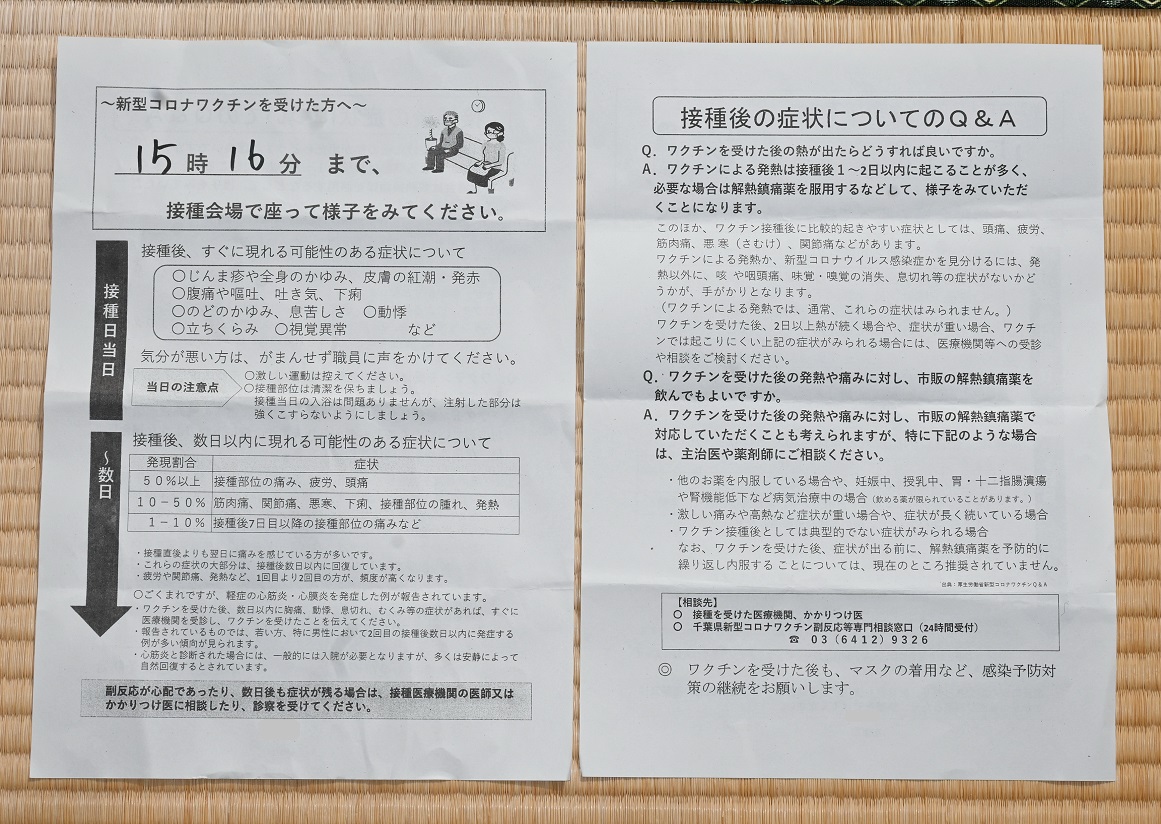 ～新型コロナワクチンを受けた方へ～
15時16分 まで、
接種会場で座って様子をみてください。
接種日当日
接種後、すぐに現れる可能性のある症状について
○じんま疹や全身のかゆみ、皮膚の紅潮・発赤
○腹痛や嘔吐、吐き気、下痢
○のどのかゆみ、息苦しさ ○動悸
○立ちくらみ ○視覚異常 など
気分が悪い方は、がまんせず職員に声をかけてください。
当日の注意点
○激しい運動は控えてください。
○接種部位は清潔を保ちましょう。
接種当日の入浴は問題ありませんが、注射した部分は
強くこすらないようにしましょう。
～数日
接種後、数日以内に現れる可能性のある症状について
発現割合 症状
50%以上 接種部位の痛み、疲労、頭痛
10－50% 筋肉痛、関節痛、悪寒、下痢、接種部位の腫れ、発熱
1－10% 接種後7日目以降の接種部位の痛みなど
・接種直後よりも翌日に痛みを感じている方が多いです。
・これらの症状の大部分は、接種後数日以内に回復しています。
・疲労や関節痛、発熱など、1回目より2回目の方が、頻度が高くなります。
○ごくまれですが、軽症の心筋炎・心膜炎を発症した例が報告されています。
・ワクチンを受けた後、数日以内に胸痛、動悸、息切れ、むくみ等の症状があれば、すぐに
医療機関を受診し、ワクチンを受けたことを伝えてください。
・報告されているものでは、若い方、特に男性において2回目の接種後数日以内に発症する
例が多い傾向が見られます。
・心筋炎と診断された場合には、一般的には入院が必要となりますが、多くは安静によって
自然回復するとされています。
副反応が心配であったり、数日後も症状が残る場合は、接種医療機関の医師又は
かかりつけ医に相談したり、診察を受けてください。
接種後の症状についてのＱ＆Ａ
Ｑ．ワクチンを受けた後の熱が出たらどうすれば良いですか。
Ａ．ワクチンによる発熱は接種後１～2日以内に起こることが多く、
必要な場合は解熱鎮痛薬を服用するなどして、様子をみていただ
くことになります。
このほか、ワクチン接種後に比較的起きやすい症状としては、頭痛、疲労、
筋肉痛、悪寒（さむけ）、関節痛などがあります。
ワクチンによる発熱か、新型コロナウイルス感染症かを見分けるには、発
熱以外に、咳 や咽頭痛、味覚・嗅覚の消失、息切れ等の症状がないかど
うかが、手がかりとなります。
（ワクチンによる発熱では、通常、これらの症状はみられません。）
ワクチンを受けた後、2日以上熱が続く場合や、症状が重い場合、ワクチ
ンでは起こりにくい上記の症状がみられる場合には、医療機関等への受診
や相談をご検討ください。
Ｑ．ワクチンを受けた後の発熱や痛みに対し、市販の解熱鎮痛薬を
飲んでもよいですか。
Ａ．ワクチンを受けた後の発熱や痛みに対し、市販の解熱鎮痛薬で
対応していただくことも考えられますが、特に下記のような場合
は、主治医や薬剤師にご相談ください。
・他のお薬を内服している場合や、妊娠中、授乳中、胃・十二指腸潰瘍
や腎機能低下など病気治療中の場合（飲める薬が限られていることがあります。）
・激しい痛みや高熱など症状が重い場合や、症状が長く続いている場合
・ワクチン接種後としては典型的でない症状がみられる場合
なお、ワクチンを受けた後、症状が出る前に、解熱鎮痛薬を予防的に
繰り返し内服する ことについては、現在のところ推奨されていません。
出典：厚生労働省新型コロナワクチンＱ＆Ａ
【相談先】
○ 接種を受けた医療機関、かかりつけ医
○ 千葉県新型コロナワクチン副反応等専門相談窓口（24時間受付）
☎ 03（6412）9326
◎ ワクチンを受けた後も、マスクの着用など、感染予防対
策の継続をお願いします。